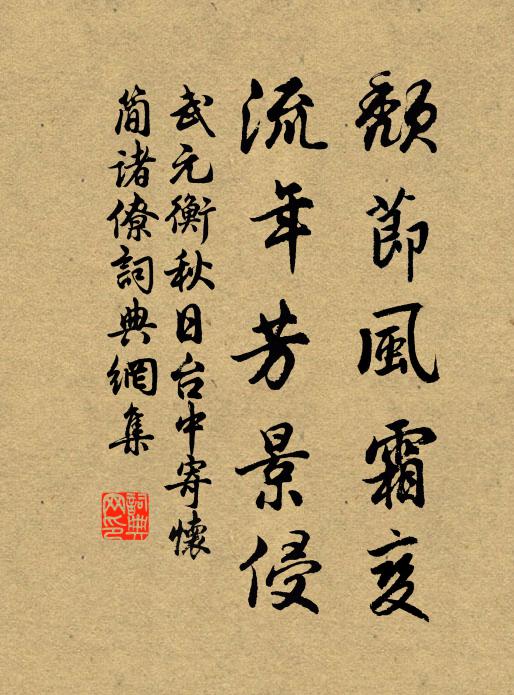 頹節風霜变
流年芳景侵
武元衡秋日台中寄懷
簡諸僚詞典網集
詞典网印